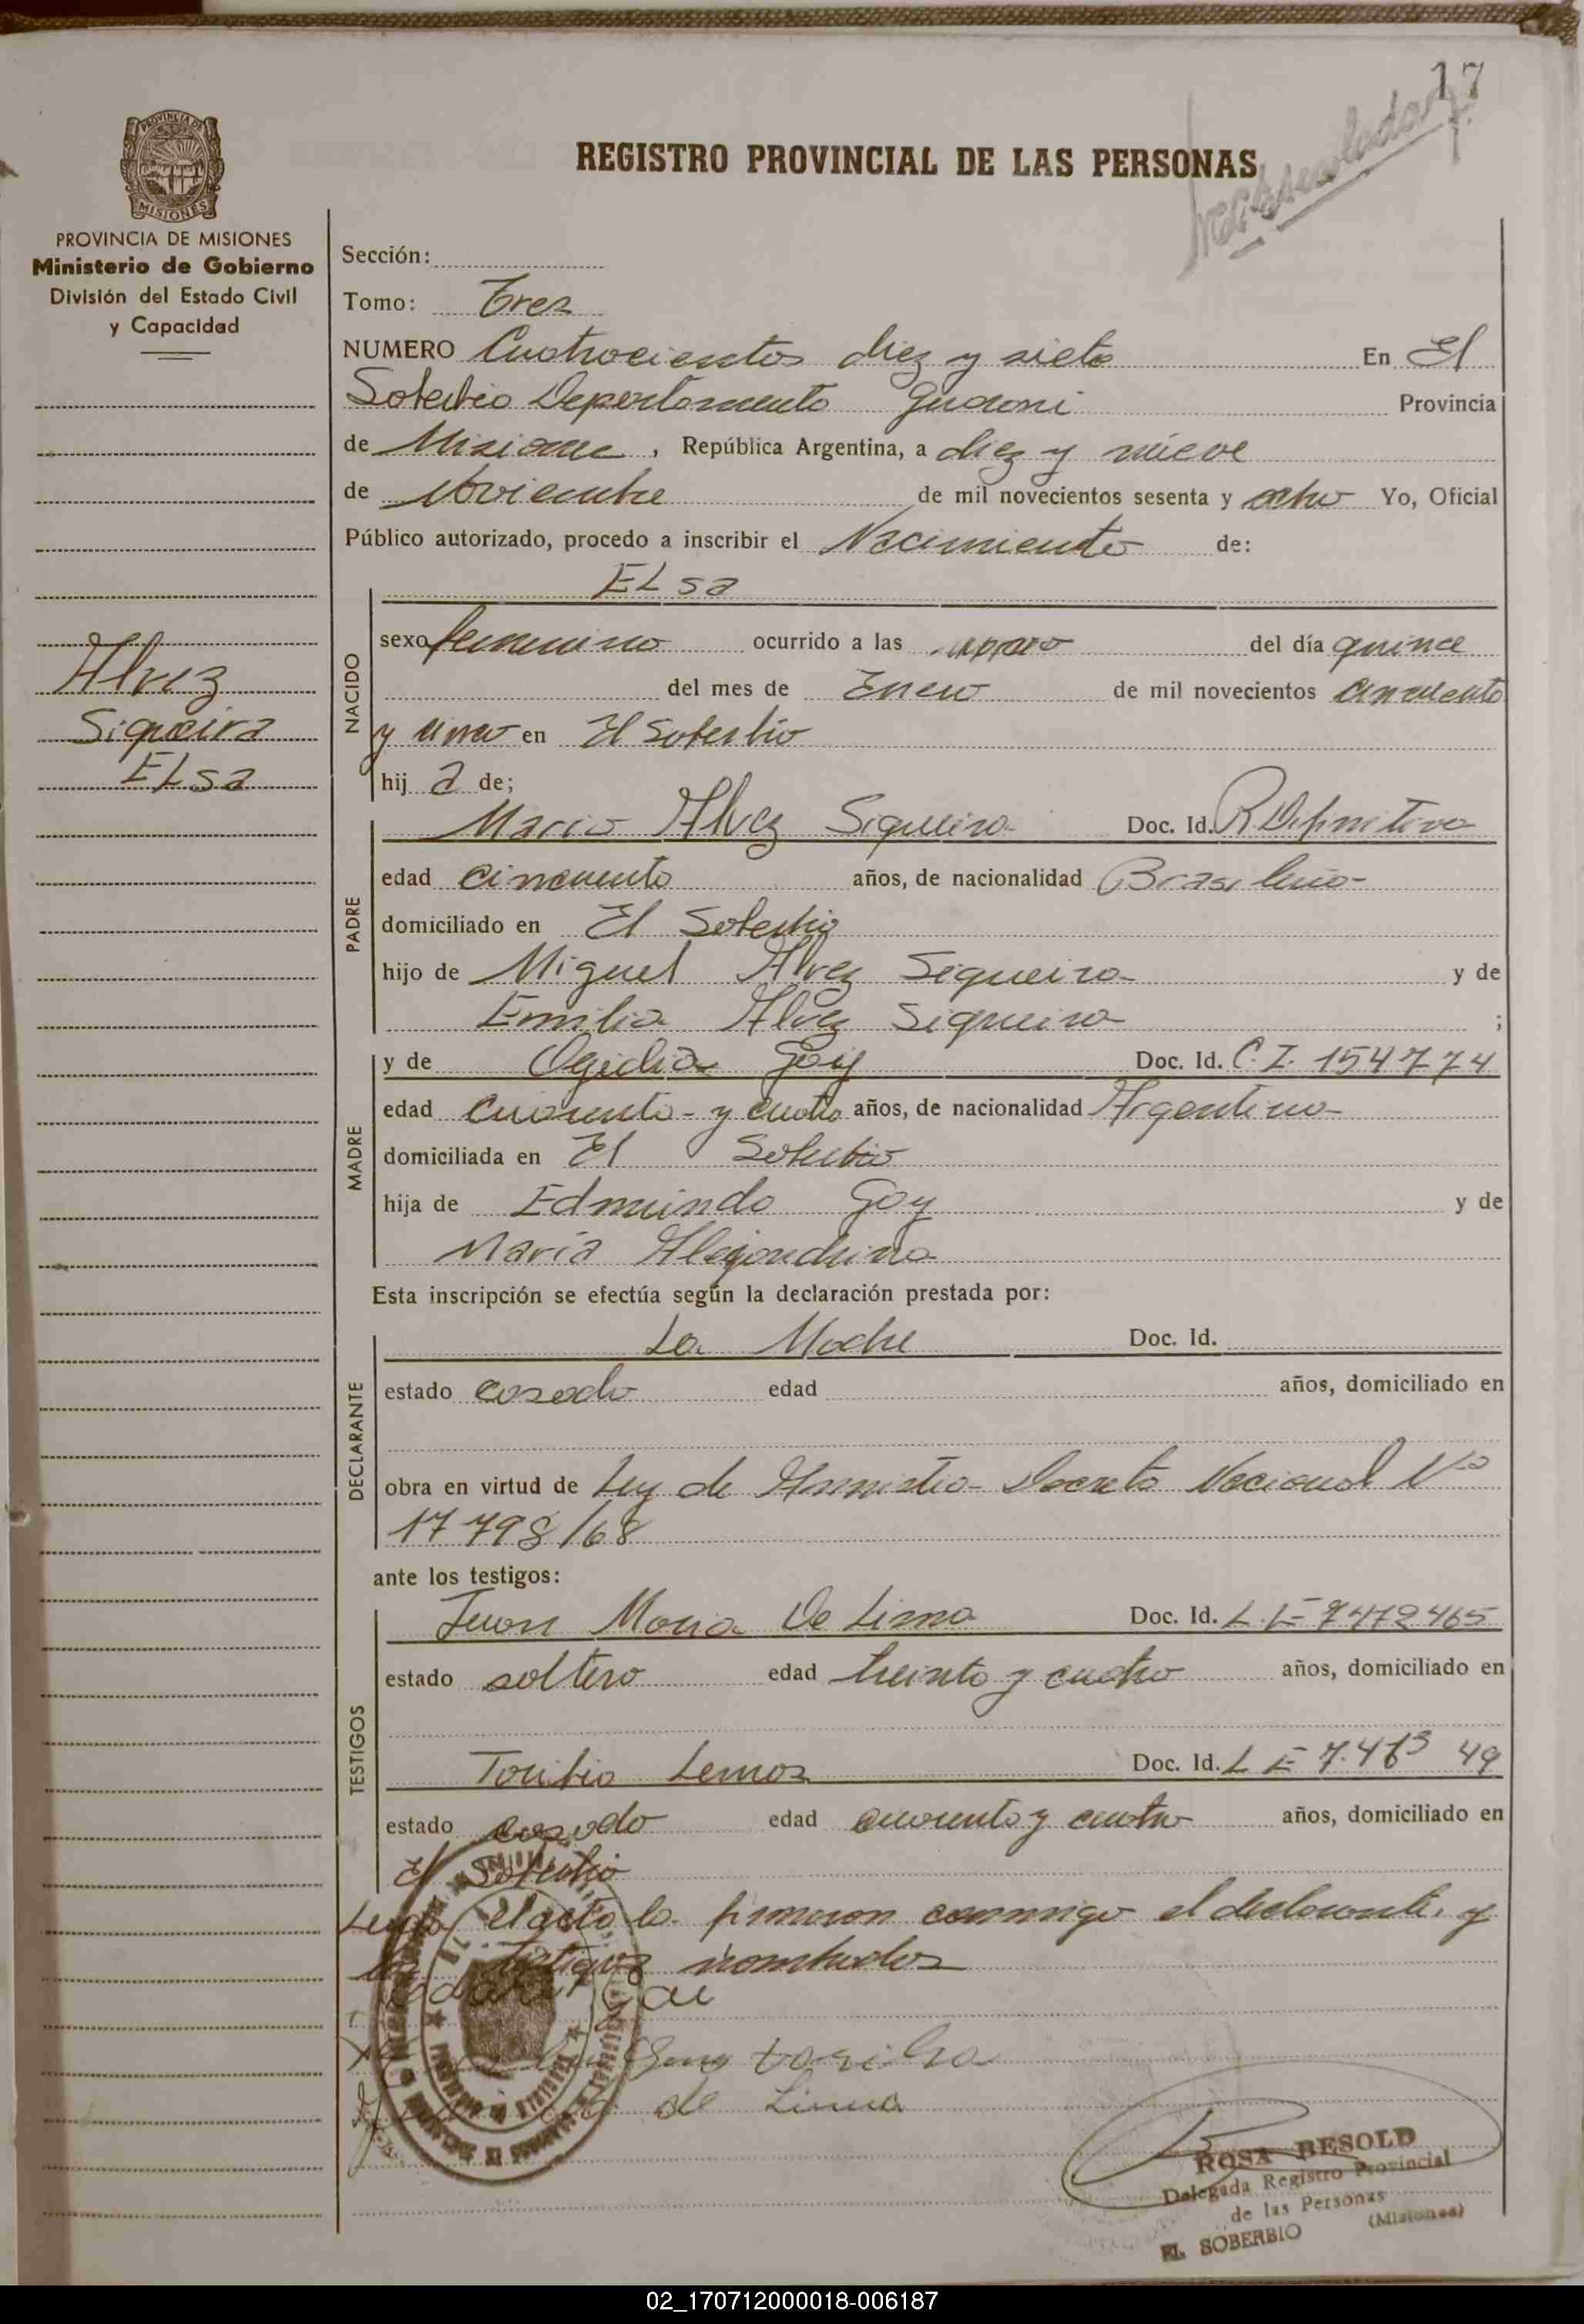 17
Matriculada
PROVINCIA DE
MISIONES
PROVINCIA DE MISIONES
Ministerio de Gobierno
División del Estado Civil
y Capacidad
REGISTRO PROVINCIAL DE LAS PERSONAS
Sección:
Tomo: Tres
NUMERO Cuatrocientos diez y siete En El
Soberbio Departamento Guarani Provincia
de Misiones, República Argentina, a diez y nueve
de Noviembre de mil novecientos sesenta y ocho Yo, Oficial
Público autorizado, procedo a inscribir el Nacimiento de:
Alvez
Siqueira
ELsa
NACIDO
ELsa
sexo femenino ocurrido a las del día quince
del mes de Enero de mil novecientos cincuenta
y cinco en El Soberbio
hij a de;
PADRE
Mario Alvez Siqueira Doc. Id. R Definitiva
edad cincuenta años, de nacionalidad Brasileña
domiciliado en El Soberbio
hijo de Miguel Alvez Siqueira y de
Emilia Alvez Siqueira ;
MADRE
y de Ogidia Goy Doc. Id. C. I. 154774
edad cuarenta y cuatro años, de nacionalidad Argentina
domiciliada en El Soberbio
hija de Edmundo Goy y de
María Alejandrina
Esta inscripción se efectúa según la declaración prestada por:
DECLARANTE
La Madre Doc. Id.
estado casada edad años, domiciliado en
obra en virtud de Ley de Amnistia Decreto Nacional Nº
17798/68
ante los testigos:
TESTIGOS
Juan Maria De Lima Doc. Id. L.E 7472465
estado soltero edad treinta y cuatro años, domiciliado en
Toribio Lemos Doc. Id. L E 7.473 49
estado casado edad cuarenta y cuatro años, domiciliado en
El Soberbio
Leida el acta la firmaron conmigo el declarante y
los testigos nombrados
de Lima
ROSA BESOLD
Delegada Registro Provincial
de las Personas
EL SOBERBIO (Misiones)
02_170712000018-006187